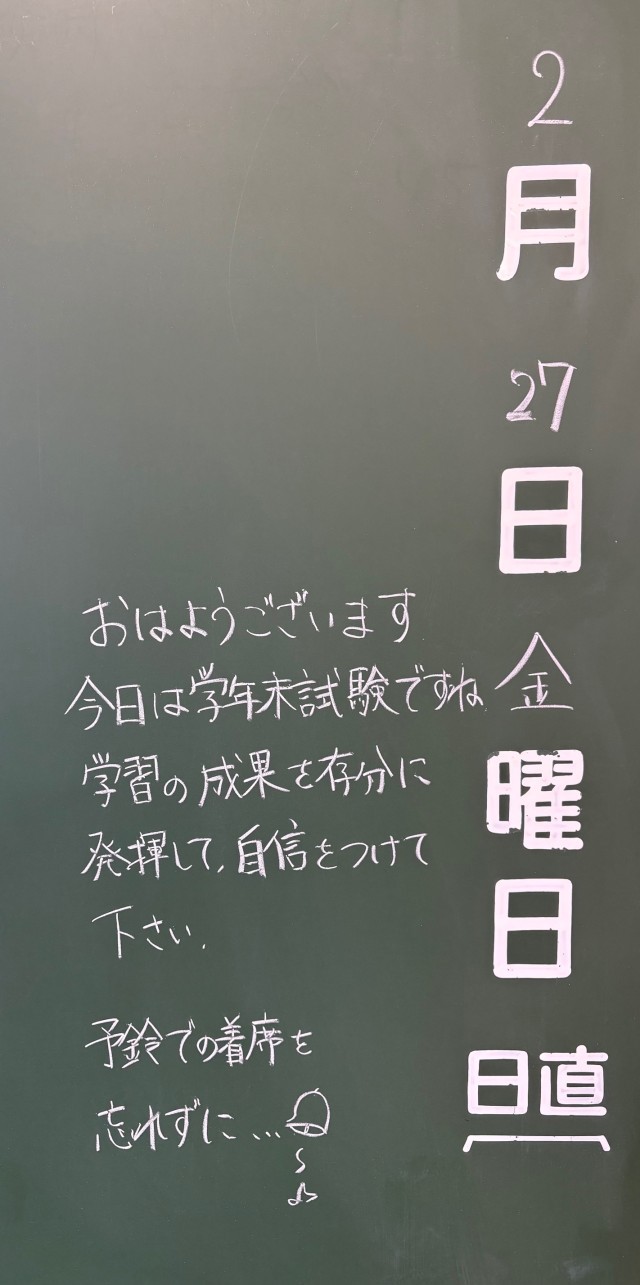 2月27日金曜日
日直
おはようございます
今日は学年末試験ですね
学習の成果を存分に
発揮して、自信をつけて
下さい。
予鈴での着席を
忘れずに…